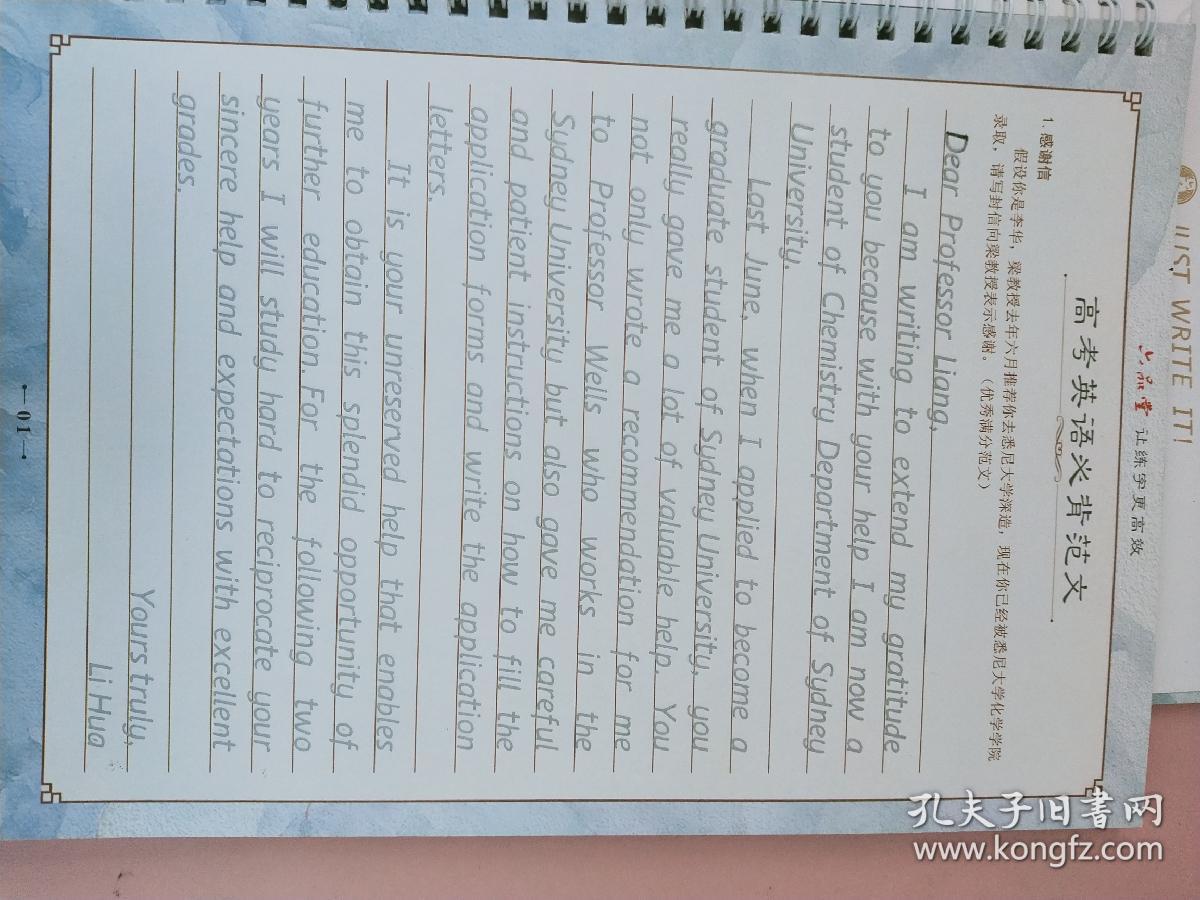 JUST WRITE IT!
六品堂 让练字更高效
高考英语必背范文
1. 感谢信
假设你是李华，梁教授去年六月推荐你去悉尼大学深造，现在你已经被悉尼大学化学学院
录取，请写封信向梁教授表示感谢。（优秀满分范文）
Dear Professor Liang,
I am writing to extend my gratitude
to you because with your help I am now a
student of Chemistry Department of Sydney
University.
Last June, when I applied to become a
graduate student of Sydney University, you
really gave me a lot of valuable help. You
not only wrote a recommendation for me
to Professor Wells who works in the
Sydney University but also gave me careful
and patient instructions on how to fill the
application forms and write the application
letters.
It is your unreserved help that enables
me to obtain this splendid opportunity of
further education. For the following two
years I will study hard to reciprocate your
sincere help and expectations with excellent
grades.
Yours truly,
Li Hua
01
孔夫子旧书网
www.kongfz.com